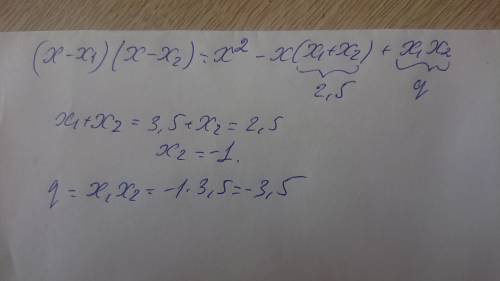 (x-x₁)(x-x₂)=x²-x(x₁+x₂)+x₁x₂
2,5 q
x₁+x₂=3,5+x₂=2,5
x₂=-1.
q=x₁x₂=-1·3,5=-3,5